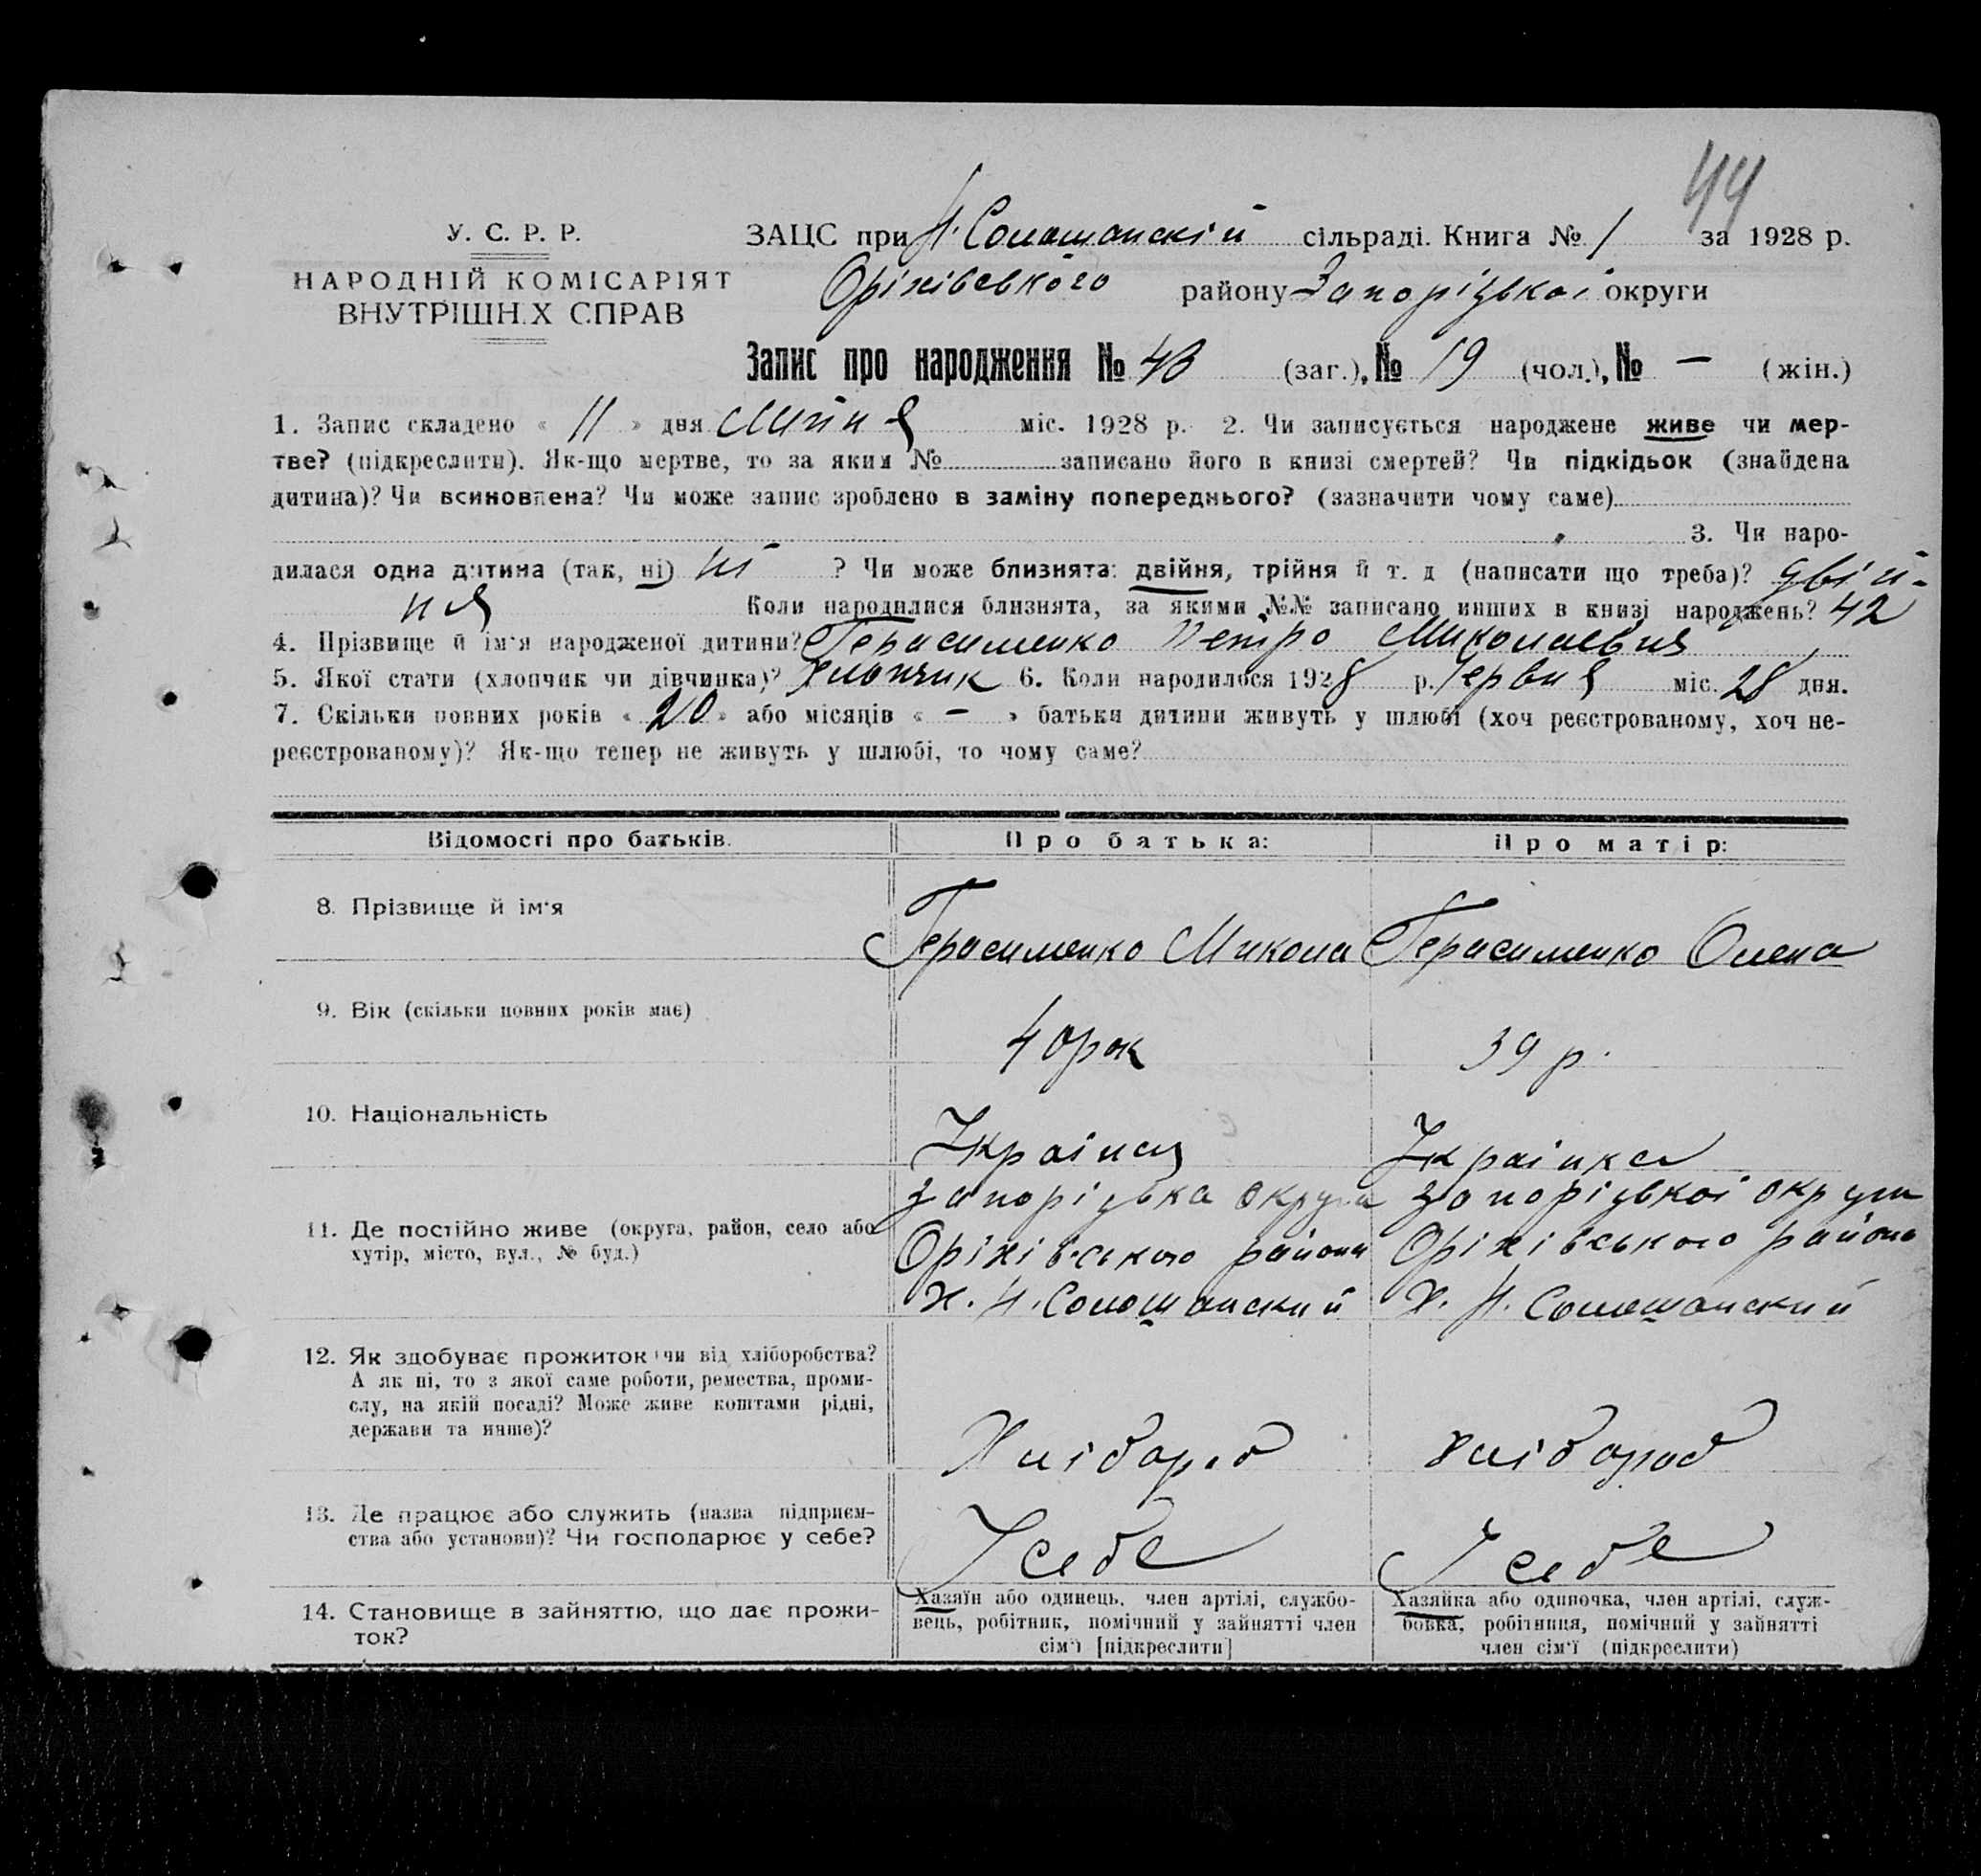 44
У. С. Р. Р.
НАРОДНІЙ КОМІСАРІЯТ
ВНУТРІШН.Х СПРАВ
ЗАЦС при Н. Солошанскій сільраді. Книга № 1 за 1928 р.
Оріхівського району Запоріцької округи
Запис про народження № 43 (заг.), № 19 (чол.), № — (жін.)
1. Запис складено « 11 » дня Липня міс. 1928 р. 2. Чи записується народжене живе чи мер-
тве? (підкреслити). Як-що мертве, то за яким № записано його в книзі смертей? Чи підкідьок (знайдена
дитина)? Чи всиновлена? Чи може запис зроблено в заміну попереднього? (зазначити чому саме)
3. Чи наро-
дилася одна дитина (так, ні) ні ? Чи може близнята: двійня, трійня й т. д (написати що треба)? двій-
ня Коли народилися близнята, за якими №№ записано инших в книзі народжень? 42
4. Прізвище й ім'я народженої дитини? Герасименко Петро Миколаевич
5. Якої стати (хлопчик чи дівчинка)? Хлопчик 6. Коли народилося 1928 р. Червня міс. 28 дня.
7. Скільки повних років « 20 » або місяців « — » батьки дитини живуть у шлюбі (хоч реєстрованому, хоч не-
реєстрованому)? Як-що тепер не живуть у шлюбі, то чому саме?
Відомості про батьків. Про батька: Про матір:
8. Прізвище й ім'я Герасименко Микола Герасименко Олена
9. Вік (скільки повних років має) 40 рок 39 р.
10. Національність Українец Українка
11. Де постійно живе (округа, район, село або хутір, місто, вул., № буд.)
Запоріцька округа Запоріцької округи
Оріхівського района Оріхівського района
Х. Н. Солошанский Х. Н. Солошанский
12. Як здобуває прожиток (чи від хліборобства?
А як ні, то з якої саме роботи, ремества, проми-
слу, на якій посаді? Може живе коштами рідні,
держави та инше)?
Хлібороб хлібороб
13. Де працює або служить (назва підприєм-
ства або установи)? Чи господарює у себе?
У себе У себе
14. Становище в зайняттю, що дає прожи-
ток?
Хазяїн або одинець, член артілі, службо-
вець, робітник, помічний у зайнятті член
сім'ї [підкреслити]
Хазяйка або одиночка, член артілі, служ-
бовка, робітниця, помічний у зайнятті
член сім'ї (підкреслити)